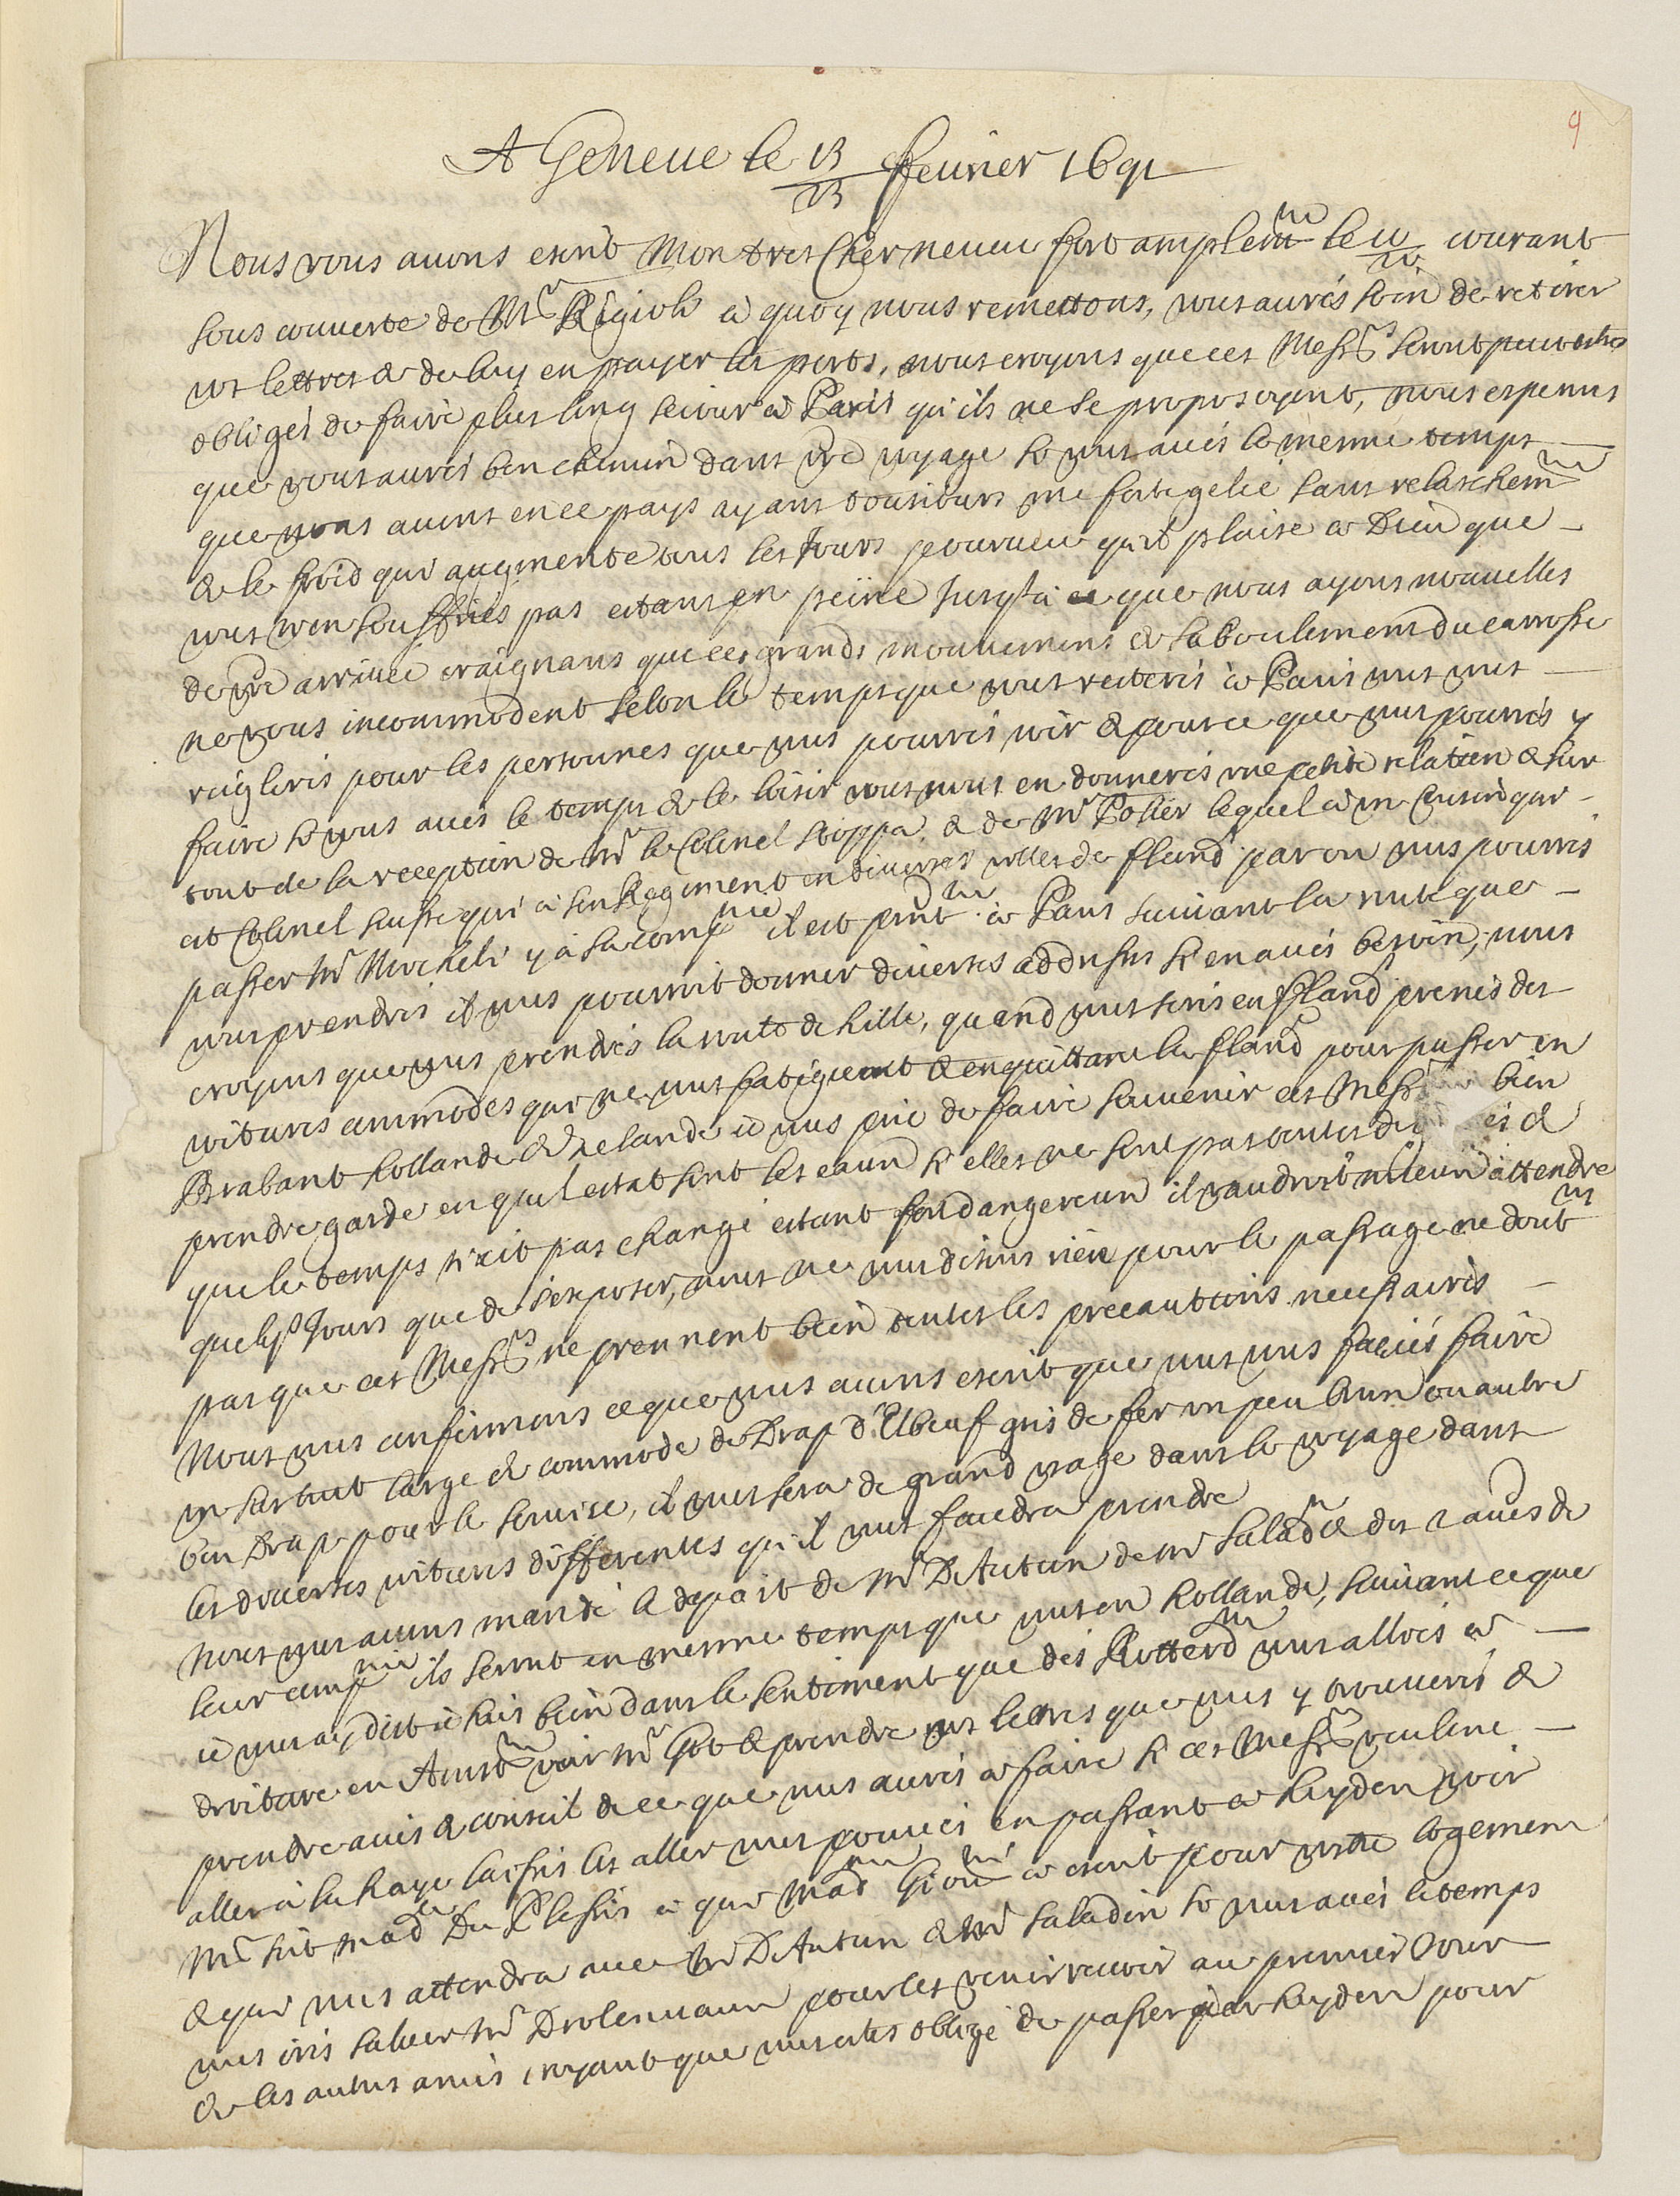 9
A Geneue le 13/23 feurier 1691
Nous vous auons escrit Mon tres Cher neueu fort amplem.nt le courant
sous couuerte de Mr Rigiols a quoy nous remettons, vous aurés soin de retirer
vos lettres & de luy en payer les ports, nous croyons que ces Messrs seront peut estre
obligés de faire plus long seiour a Paris qu'ils ne se proposoyent, nous esperons
que vous aurés bon chemin dans vre voyage so vous aués le mesme temps
que nous auons en ce pays ayans tousiours une forte gelée sans relaschemnt
& le froid qui augmente tous les Jours pourueu qu'il plaise a Dieu que
vous n'en souffriés pas estans en peine Jusqu'a ce que nous ayons nouuelles
de vre arriuée craignans que ces grands mouuemens & saboulemens du carrosse
ne vous incommodent selon le temps que vous resterés a Paris vous vous
reiglerés pour les personnes que vous pourrés voir & pour ce que vous pourrés y
faire so vous aués le temps & le loisir vous nous en donnerés vne petite relation & sur
tout de la reception de Mr le Colonel Stoppa & de Mr Polier lequel a un Cousin qui
est Colonel suisse qui a son Regiment en diuerses villes de fland par ou vous pourrés
passer Mr Micheli y a sa compnie il est printmt a Paris suiuant la route que
vous prendrés il vous pourroit donner diuerses addresses s'en aués besoin, nous
croyons que vous prendrés la route de Lille, quand vous serés en ffland prenés des
voitures commodes qui ne vous fatiguent & en quittant la fland pour passer en
Brabant hollande & Zelande ie vous prie de faire souuenir ces Messrs bien
prendre garde en quel estat sont les eaux s'elles ne sont pas toutes &
que le temps n'ait pas changé estant fort dangereux il vaudroit mieux attendre
quelqs Jours que de s'exposer, nous ne vous disons rien pour le passage ne doutns
pas que ces Messrs ne prennent bien toutes les precautions necessaires
Nous vous confirmons ce que vous auons escrit que vous vous faciés faire
un surtout large & commode de Drap d'Elbeuf gris de fer un peu brun ou autre
bon Drap pour le seruice, il vous sera de grand vsage dans le voyage dans
les diuerses voitures differentes qu'il vous faudra prendre
Nous vous auons mandé le depart de Mr DeAutun de Mr Saladn & des de
leur compnie ils seront en mesme temps que vous en hollande, suiuant ce que
ie vous ay dit ie suis bien dans le sentiment que des Rotterdm vous alliés a
droiture en Amstm voir Mr Got & prendre vos lettres que vous y trouuerés &
prendre auis & conseil de ce que vous aurés a faire so ces Messrs veulent
aller a la haye laissés les aller vous pouués en passant a Leyden voir
Mr soit made Du Plessis a qui madme Gion a escrit pour vostre logement
& qui vous attendra auec Mr DeAutun & Mr Saladin so vous aués le temps
vous irés saluer Mr Drolenuaux pour les venir reuoir au premier Jour
& les autres amis croyant que vous estes obligé de passer par Leyden pour